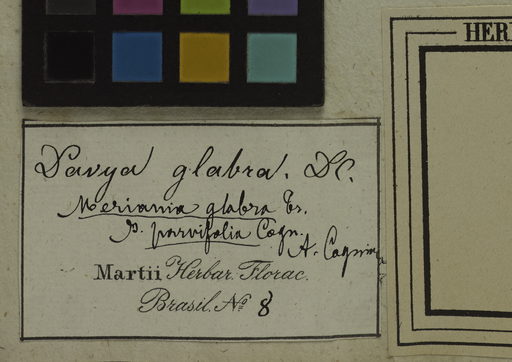 Davya glabra. DC.
Meriania glabra Tr.
β. parvifolia Cogn.
A. Cogniaux
Martii Herbar. Florae.
Brasil. No 8
HER